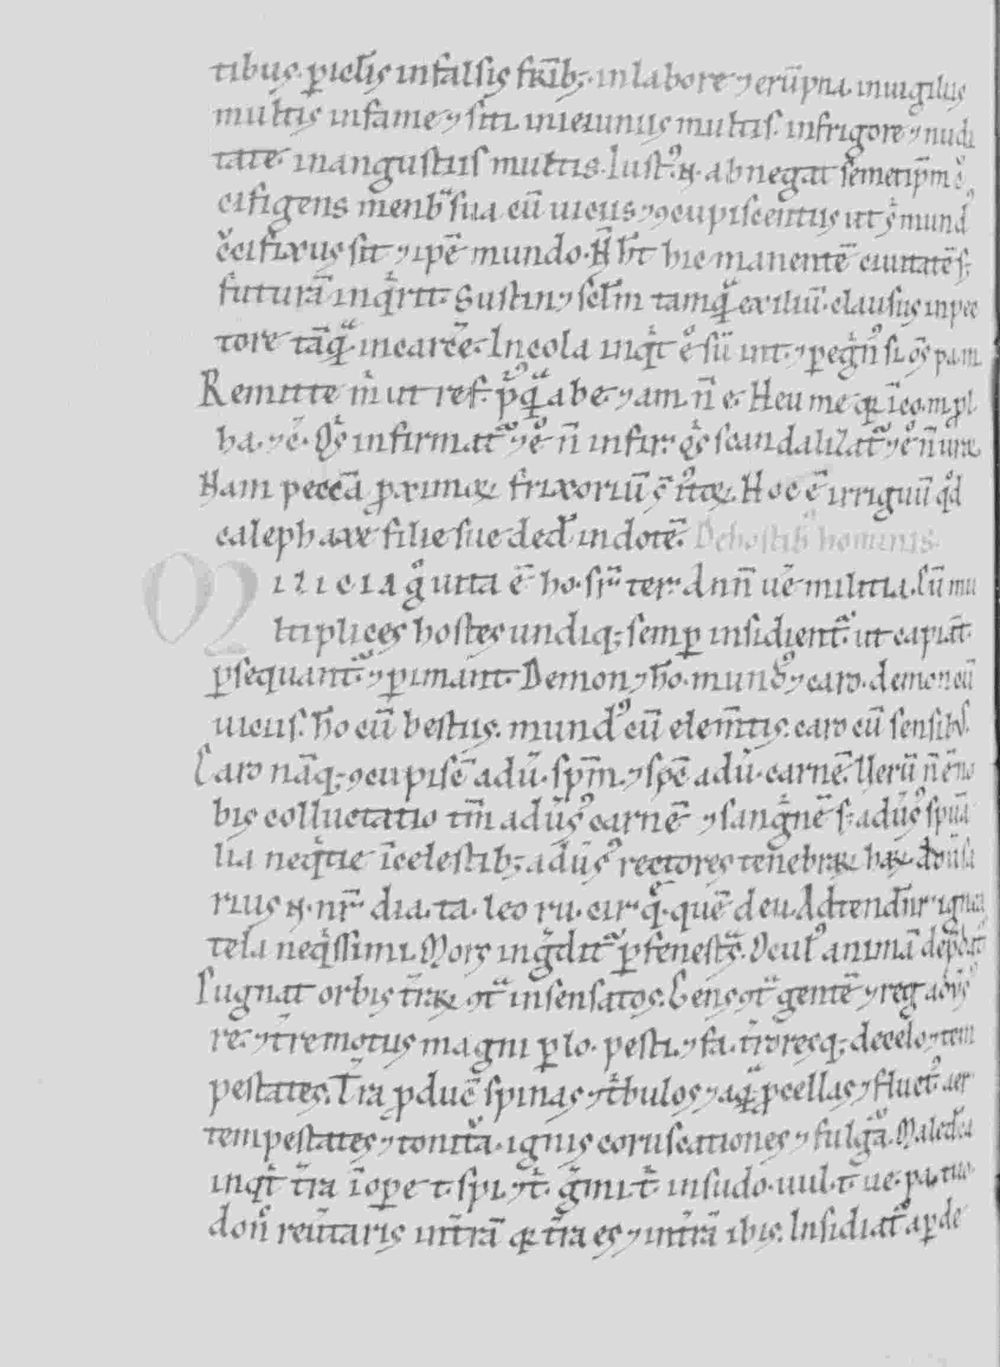 tibus. ꝑicl̄is in falsis fr̄ib; in labore ⁊ erūpna. in uigiliis
multis in fame ⁊ siti. in ieiuniis multis. in frigore ⁊ nudi
tate. in angustiis multis. Iustꝰ. n̄. abnegat semetip̄m
cifigens menb̄ sua cū uiciis ⁊ ꝯcupiscentiis ut ⁊ mund
cͥcifixus sit ⁊ ip̄e mundo. N̄ h̄t hic manentē ciuitatē s;
futurā inqͥrit. Sustin⁊ sc̄lm tamqͣ exiliū. clausus in pec
tore tāqͣ in carcē. Incola inqͥt eͦ sū in t. ⁊ peregͥnꝰ s. oēs pa. m.
Remitte m̄ ut ref. pͥꝰqͣ abe. ⁊ am. n̄ e. Heu me qꝛ ico. m. pl.
ba. ⁊ c̄. Qͥs infirmat᷑ ⁊ eͦ n̄ infir. qͥs scandalizat᷑ ⁊ eͦ n̄ uror
Nam peccā ꝓximoꝝ frixoriū ē iꝰtoꝝ. Hoc ē irriguū qͦd
caleph axe filie sue ded̄ in dotē. De hostib hominis.
Milicia gͦ uita ē ho. sr̄ ter. Ann̄ uē militia. Cū mu
ltiplices hostes undiq; semꝑ insident᷑ ut capiāt.
ꝑsequant᷑ ⁊ ꝑimant. Demon ⁊ h̄o. mundꝰ ⁊ caro. demon cū
uiciis. h̄o cū bestiis. mundꝰ cū elem̄tis. caro cū sensibꝰ.
Caro nāq; ꝯcupisē adū. sp̄m. ⁊ sp̄c adū. carnē. Uerū n̄ ē no
bis colluctatio tm̄ adūsꝰ carnē ⁊ sangͥnē s; adūsꝰ sp̄ua
lia neqͥtie ī celestib; adūsꝰ rectores tenebraꝝ haꝝ. Adūsa
rius n̄. nr̄ dia. ta. leo ru. cir. qͥ. quē deu. Adtend̄nr ignea
tela neqͥssimi. Mors ingͥdit᷑ ꝑ fenestͣs. Oculꝰ animā dep̄dat᷑
Pugnat orbis t̄raꝝ ꝯtͣ insensatos. Gens ꝯtͣ gentē ⁊ reg adūsꝰ
re. ⁊ t̄remotus magni ꝑ lo. pesti. ⁊ fa. t̄roresq; de celo ⁊ tem
pestates. T̄ra ꝓducē spinas ⁊ tͥbulos ⁊ aqͣ ꝓcellas ⁊ fluctꝰ aer
tempestates ⁊ tonitͣa. ignis coruscationes ⁊ fulgͣa. Maled̄cā
inqͥt t̄ra ī oꝑe t. spi. ⁊ tͥ. gͥmi. tͥ. in sudo. uul. t. ue. pa. tuo
don̄ reūtaris in t̄rā qꝛ t̄ra es ⁊ in t̄rā ibis. Insidiat᷑ aꝑ de